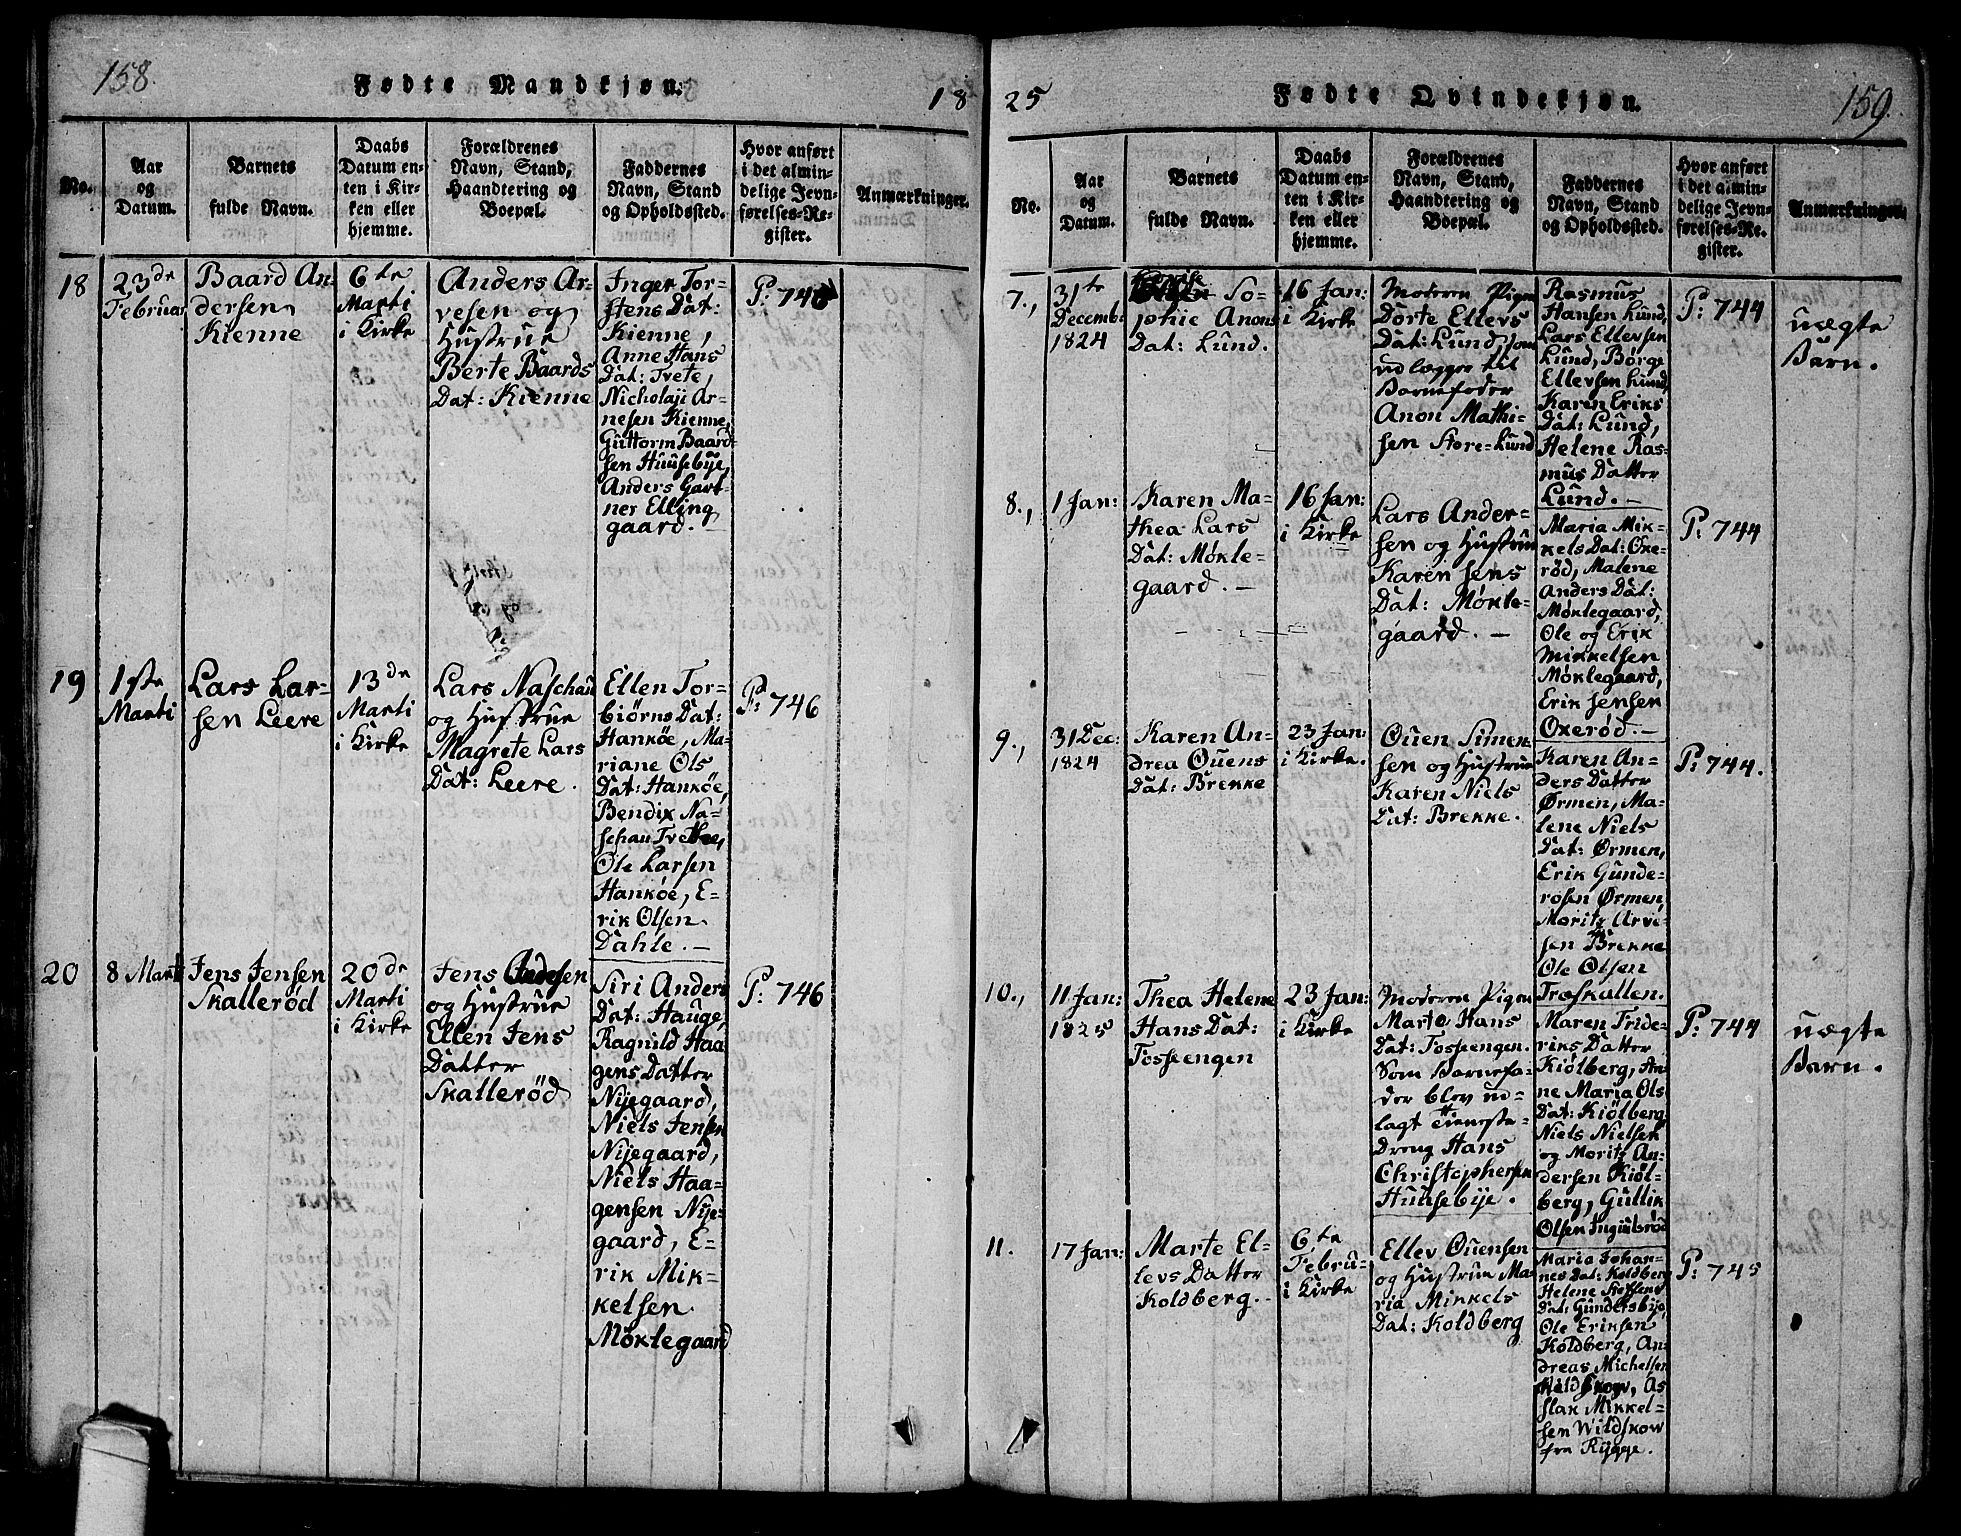 158.
Fødte Mandkjøn.
18
No.
Aar
og
Datum.
Barnets
fulde Navn.
Daabs
Datum en-
ten i Kir-
ken eller
hjemme.
Forældrenes
Navn, Stand,
Haandtering og
Boepæl.
Faddernes
Navn, Stand
og Opholdssted.
Hvor anført
i det almin-
delige Jevn-
førelses-Re-
gister.
Anmærkninger.
18
23de
Februar
Baard An-
dersen
Kienne
6te
Marti
i Kirke
Anders Ar-
vesen og
Hustrue
Berte Baards
Dat: Kienne
Inger Tor-
stens Dat:
Kienne,
Anne Hans
Dat: Tvete,
Nicholaji Ar-
nesen Kienne,
Guttorm Baard-
sen Huusebye,
Anders Gart-
ner Elling
gaard.
P: 746
19
1ste
Marti
Lars Lar-
sen Leere
13de
Marti
i Kirke
Lars Naschau
og Hustrue
Magrete Lars
Dat: Leere.
Ellen Tor-
biørns Dat:
Hankøe, Ma-
riane Ols
Dat: Hankøe,
Bendix Na-
schau Tvethe,
Ole Larsen
Hankøe, E-
rik Olsen
Dahle.
P: 746
20
8 Marti
Jens Jensen
Skallerød
20de
Marti
i Kirke
Jens
og Hustrue
Ellen Jens
Datter
Skallerød
Siri Anders
Dat: Hauge,
Ragnild Haa-
gens Datter
Nijegaard,
Niels Jensen
Nijegaard,
Niels Haa-
gensen Nije-
gaard, E-
rik Mik-
kelsen
Møklegaard
P: 746
25
Fødte Qvindekjøn.
159.
No.
Aar
og
Datum.
Barnets
fulde Navn.
Daabs
Datum en-
ten i Kir-
ken eller
hjemme.
Forældrenes
Navn, Stand,
Haandtering og
Boepæl.
Faddernes
Navn, Stand
og Opholdssted.
Hvor anført
i det almin-
delige Jevn-
førelses-Re-
gister.
Anmærkninger.
7.,
31te
Decemb:
1824
So-
phie Anons
Dat: Lund.
16 Jan:
i Kirke
Moderen Pigen
Dorte Ellevs
Dat: Lund, som
udlægger til
Barnefader
Anon Mathi-
sen Store-Lund
Rasmus
Hansen Lund,
Lars Ellevsen
Lund, Børge
Ellevsen Lund,
Karen Eriks
Dat: Lund,
Helene Ras-
mus Datter
Lund.
P: 744
uægte
Barn.
8.,
1 Jan:
Karen Ma-
thea Lars
Dat: Møkle-
gaard.
16 Jan:
i Kirke
Lars Ander-
sen og Hustrue
Karen Jens
Dat: Møkle-
gaard.
Maria Mik-
kels Dat: Oxe-
rød, Malene
Anders Dat:
Møklegaard,
Ole og Erik
Mikkelsen
Møklegaard,
Erik Jensen
Oxerød.
P: 744
9.,
31 Dec:
1824
Karen An-
drea Ouens
Dat: Brekke
23 Jan:
i Kirke.
Ouen Simen-
sen og Hustrue
Karen Niels
Dat: Brekke.
Karen An-
ders Datter
Ørmen, Ma-
lene Niels
Dat: Ørmen,
Erik Gunde-
rosen Ørmen,
Moritz Arve-
sen Brekke
Ole Olsen
Træskallen.
P: 744.
10.,
11 Jan:
1825
Thea Helene
Hans Dat:
Fosseengen
23 Jan:
i Kirke
Moderen Pigen
Marte Hans
Dat: Fosseengen.
Som Barnefa-
der blev ud-
lagt Tieneste-
Dreng Hans
Christophersen
Huusebye.
Maren Fride-
riks Datter
Kiølberg, An-
ne Maria Ols
Dat: Kiølberg
Niels Nielsen
og Moritz An-
dersen Kiøl-
berg, Gullik
Olsen Ingulsrød
P: 744
uægte
Barn.
11.
17 Jan:
Marte El-
levs Datter
Koldberg.
6te
Febru-
i Kirke
Ellev Ouensen
og Hustrue Ma-
ria Mikkels
Dat: Koldberg
Maria Johan-
nes Dat: Koldberg
Helene
Dat: Gundersbye,
Ole Eriksen
Koldberg, An-
dreas Michelsen
As-
lak Mikkel-
sen Wildskow
fra Rygge.
P: 745